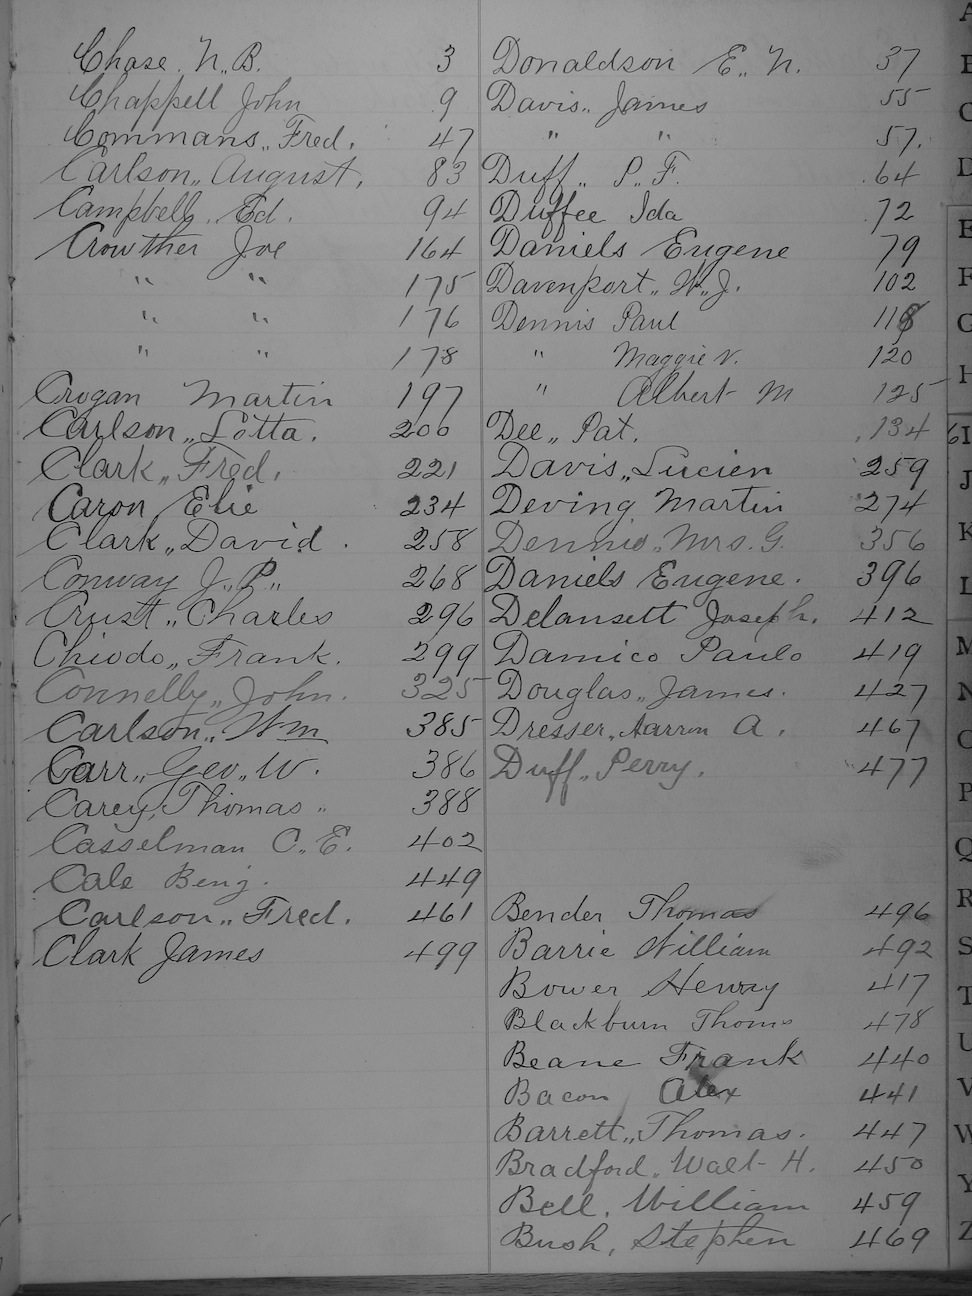 Chase N.B. 3
Chappell John 9
Commans,, Fred. 47
Carlson,, August. 83
Campbell,, Ed. 94
Crowther Joe 164
" " 175
" " 176
" " 178
Crogan Martin 197
Carlson,, Lotta. 200
Clark,, Fred. 221
Caron Elie 234
Clark,, David. 258
Conway J.,P.,, 268
Crust,, Charles 296
Chiodo,, Frank. 299
Connelly,, John. 325
Carlson,, Wm 385
Carr,, Geo,, W. 386
Carey, Thomas,, 388
Casselman C.,E. 402
Cale Benj. 449
Carlson,, Fred. 461
Clark James 499
Donaldson E.,N. 37
Davis,, James 55
" " 57.
Duff,, P.,F. 64
Duffee Ida 72
Daniels Eugene 79
Davenport,, W.,J. 102
Dennis Paul 118
" Maggie V. 120
" Albert M 125
Dee,, Pat. 134
Davis,, Lucien 259
Deving Martin 274
Dennis,, Mrs. G. 356
Daniels Eugene. 396
Delansett Joseph. 412
Damico Paulo 419
Douglas,, James. 427
Dresser,, Aarron A. 467
Duff,, Perry. 477
Bender Thomas 496
Barrie William 492
Bower Henry 417
Blackburn Thoms 478
Beane Frank 440
Bacon Alex 441
Barrett,, Thomas. 447
Bradford,, Walt- H. 450
Bell, William 459
Bush, Stephen 469
A
B
C
D
E
F
G
H
I
J
K
L
M
N
O
P
Q
R
S
T
U
V
W
Y
Z